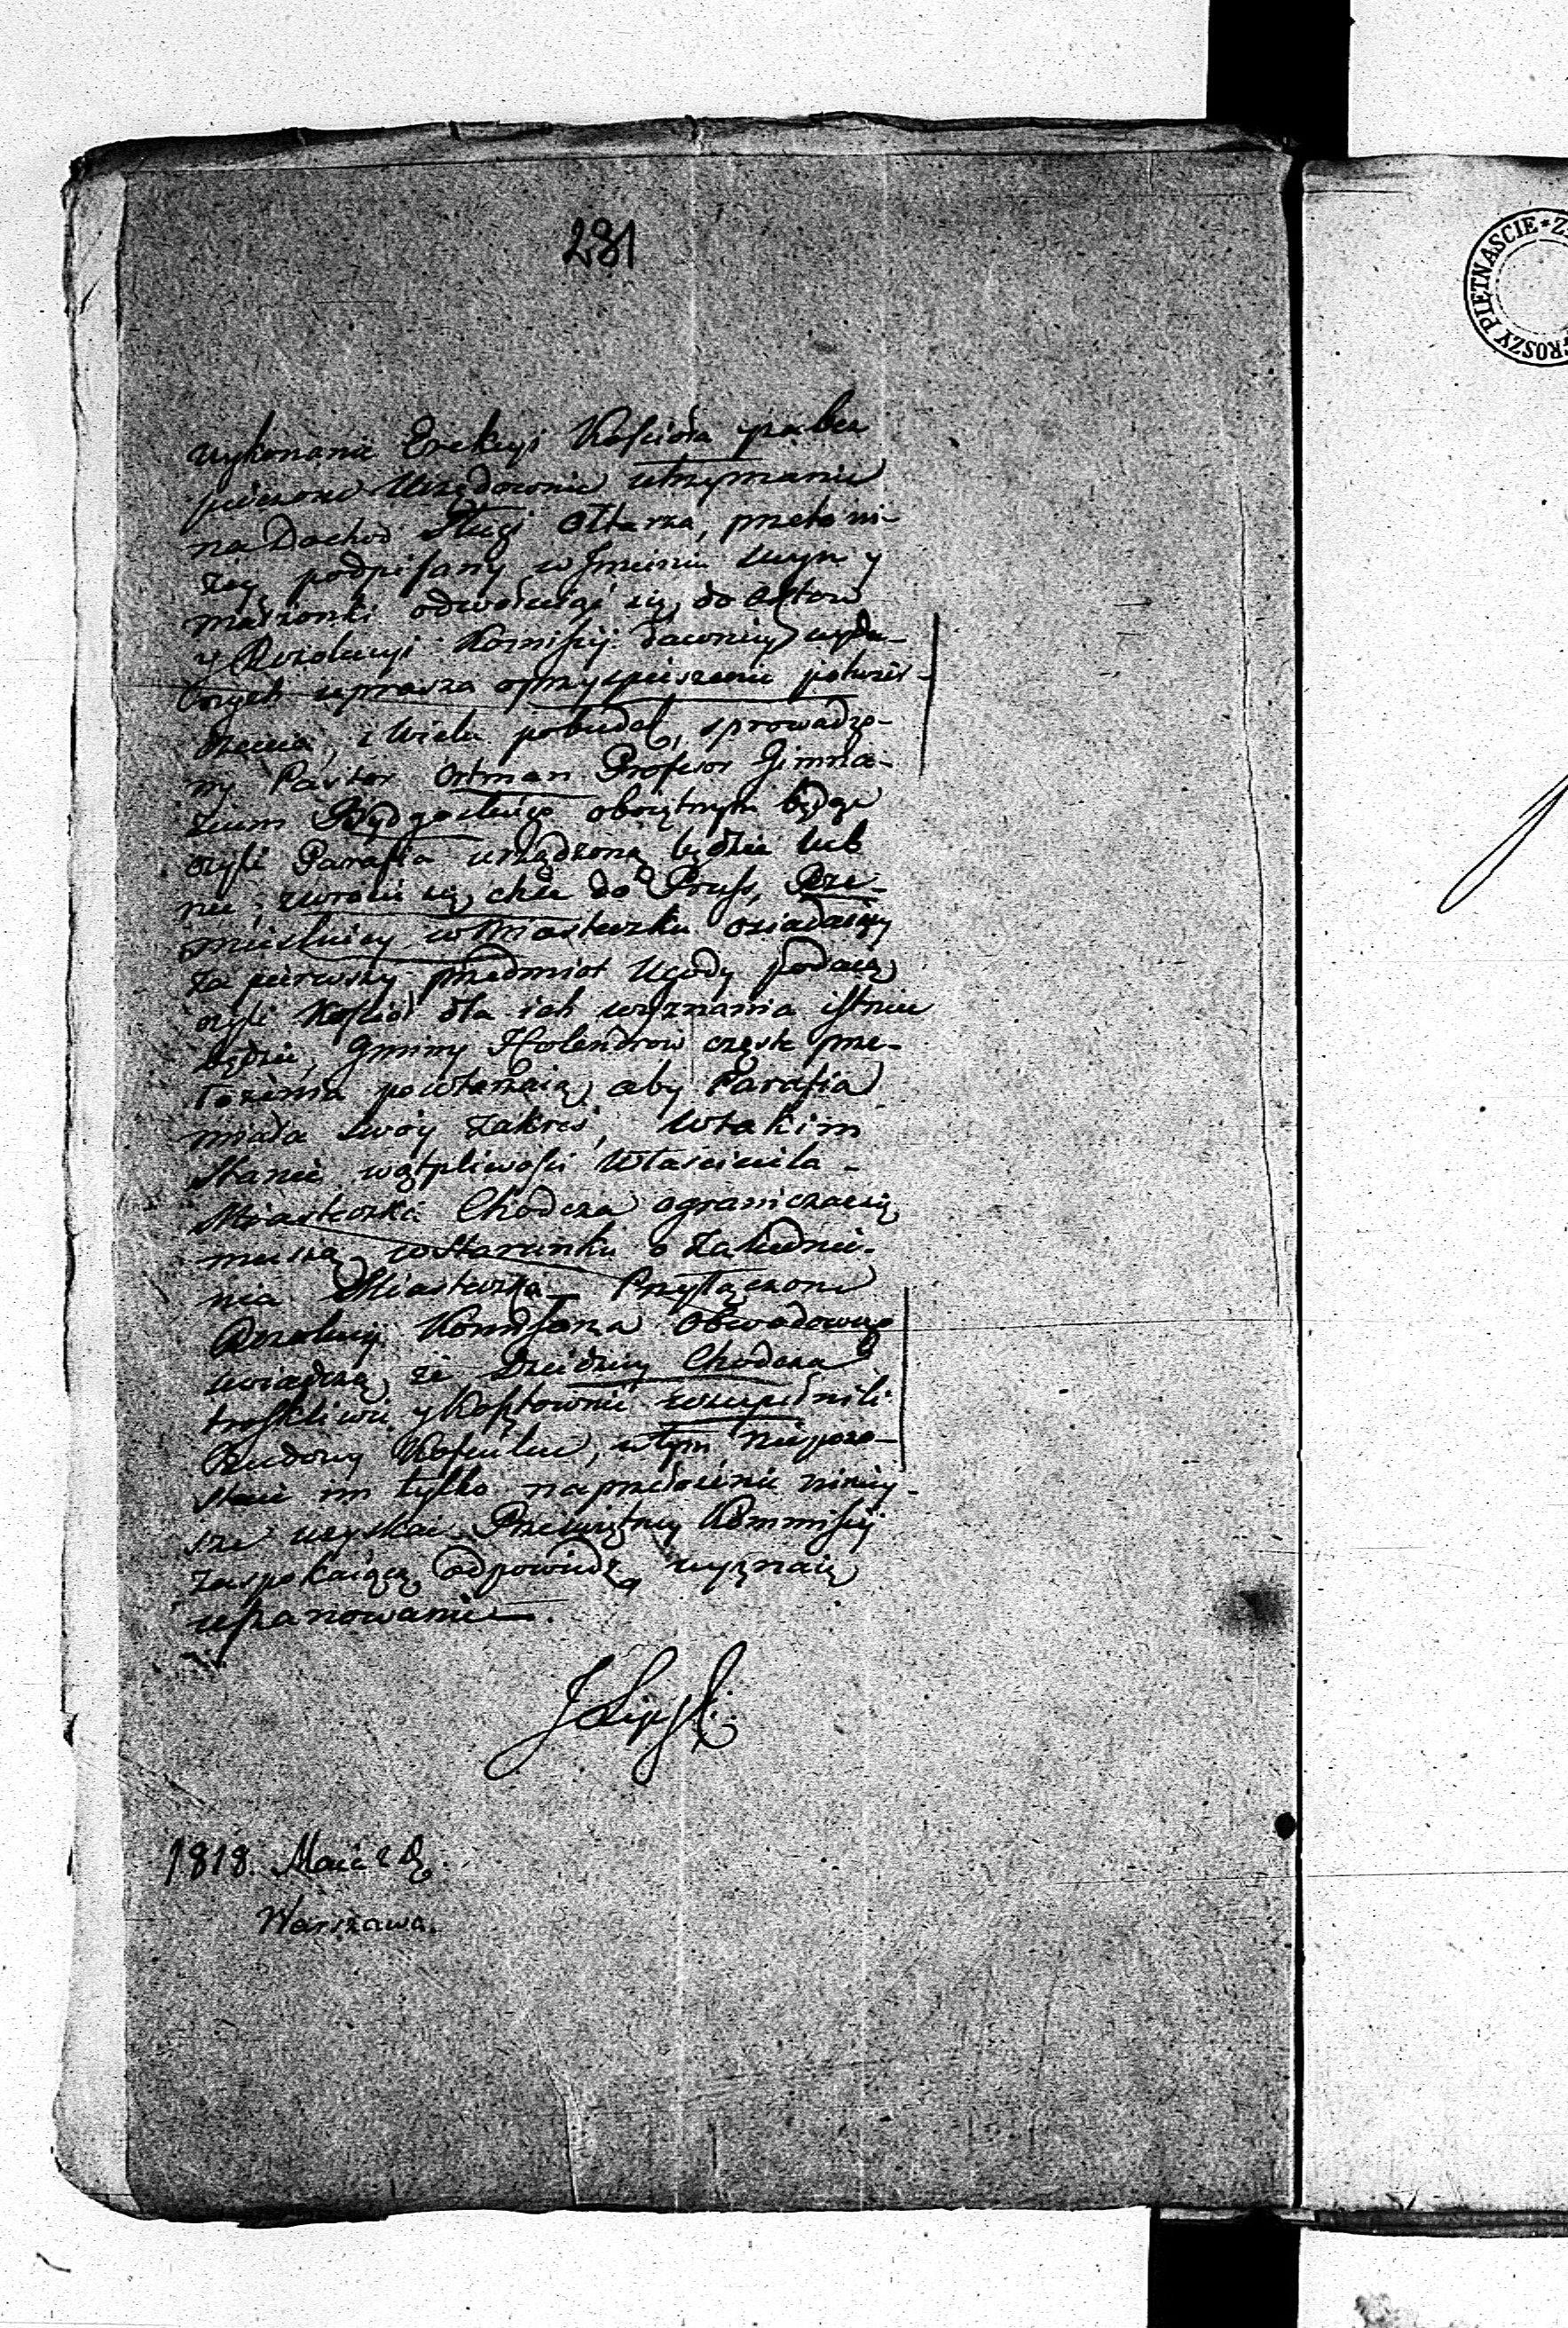 281
wykonanie Erekcyi Kościoła zabez
pieczone Urzędownie utrzymanie
na Dochód Sługi Ołtarza, przeto ni-
żey podpisany w Imieniu swym y
małżonki odwołując się do Aktow
y Rezolucyi Komissyi dawniey wyda-
nych uprasza o przyspieszenie potwier-
dzenia, z wielu pobudek, sprowadzo-
ny Pastor Ortman Profesor Gimna-
zium Bydgoskiego oboiętnym będąc
czyli Parafia urządzoną będzie lub
nie, zwrócić się chce do Pruss, Rze-
mieślnicy w Miasteczku osiadaiący
za pierwszy przedmiot Ugody podaią
czyli Kościół dla ich wyznania istnieć
będzie, Gminy Holendrow częste prze-
łożenia powtarzaią aby Parafia
miała swóy zakres, w takim
stanie wątpliwości Właściciela
Miasteczka Chodcza ograniczać się
muszą w staranku o zaludnie-
nia Miasteczka. Przyłączone
Rezolucye Komissarza Obwodowego
wiadczą że Dziedzicy Chodcza
troskliwie y kosztownie uzupełnili
Budowę Kościołu, w tym niepozo-
staie im tylko na przełożenie niniey-
sze uzyskać Przeświętney Kommissyi
zaspokaiącą odpowiedź, wyznaią
uszanowanie.
J Lipski
1818. Maia 2 D.
Warszawa.
GROSZY PIĘTNAŚCIE * Z